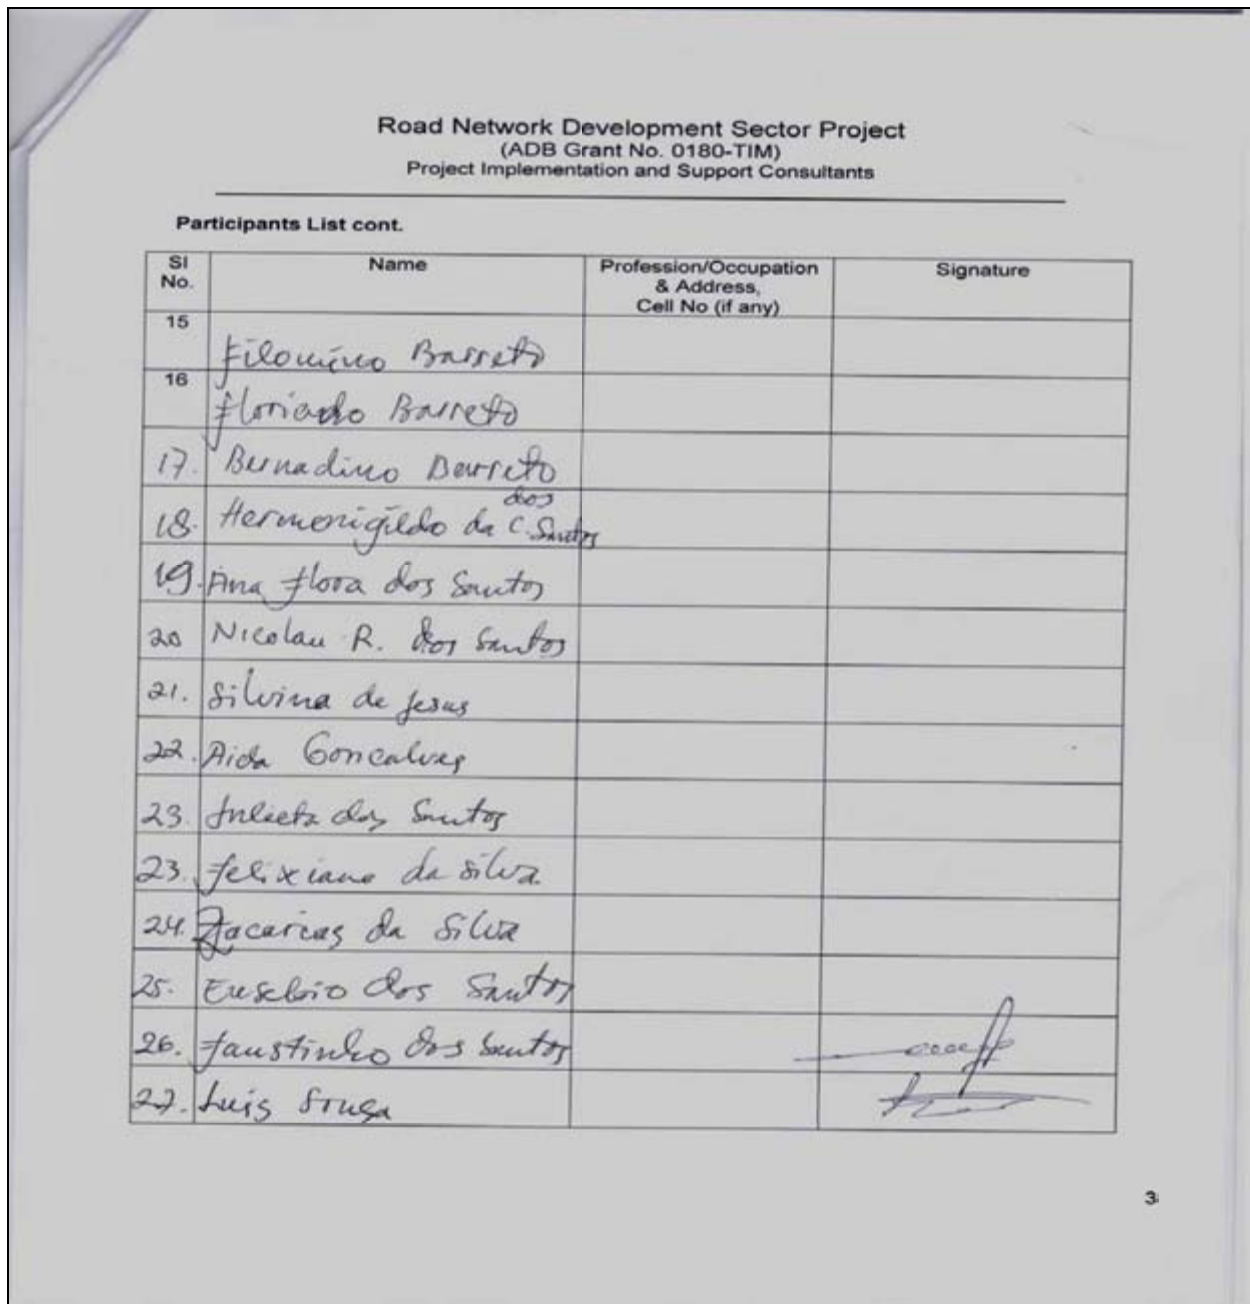 Road Network Development Sector Project
(ADB Grant No. 0180-TIM)
Project Implementation and Support Consultants
Participants List cont.
Sl No. Name Profession/Occupation & Address, Cell No (if any) Signature
15 Filomino Barreto
16 Floriado Barreto
17. Bernadino Barreto
18. Hermenigildo da C. dos Santos
19. Ana Flora dos Santos
20 Nicolau R. dos Santos
21. Silvina de Jesus
22. Aida Goncalves
23. Julieta dos Santos
23. Felixiano da Silva
24. Zacarias da Silva
25. Eusebio dos Santos
26. Faustinho dos Santos
27. Luis Sousa
3